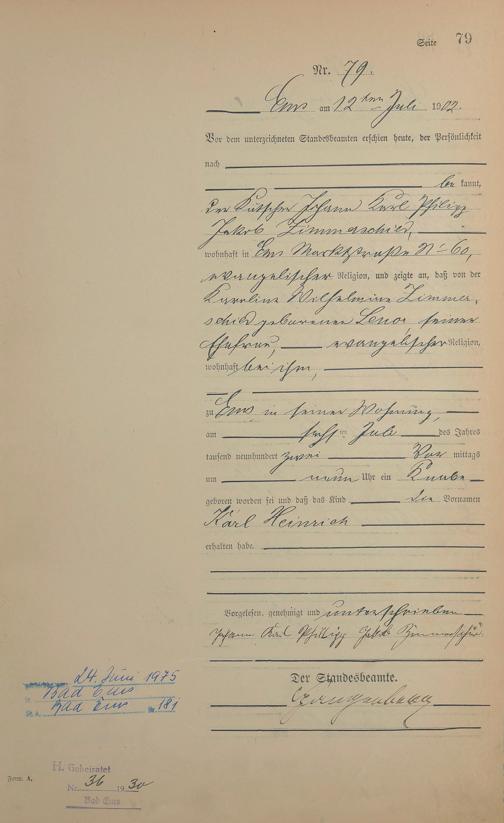 Seite 79
Nr. 79.
Ems am 12ten Juli 1902.
Vor dem unterzeichneten Standesbeamten erschien heute, der Persönlichkeit
nach
be kannt,
der Kutscher Johann Karl Philipp
Jakob Zimmerschied,
wohnhaft in Ems Marktstraße No 60,
evangelischer Religion, und zeigte an, daß von der
Karoline Wilhelmine Zimmer,
schied geborenen seiner
Ehefrau, evangelischer Religion,
wohnhaft bei ihm,
zu Ems in seiner Wohnung,
am sechsten Juli des Jahres
tausend neunhundert zwei Vor mittags
um neun Uhr ein Knabe
geboren worden sei und daß das Kind die Vornamen
Karl Heinrich
erhalten habe.
Vorgelesen, genehmigt und unterschrieben
Johann Karl Philipp Jakob Zimmerschied
Der Standesbeamte.
24. Juni 1975
Bad Ems
Bad Ems 181
H. Geheiratet
Nr. 36 1930
Bad Ems
Form. A.